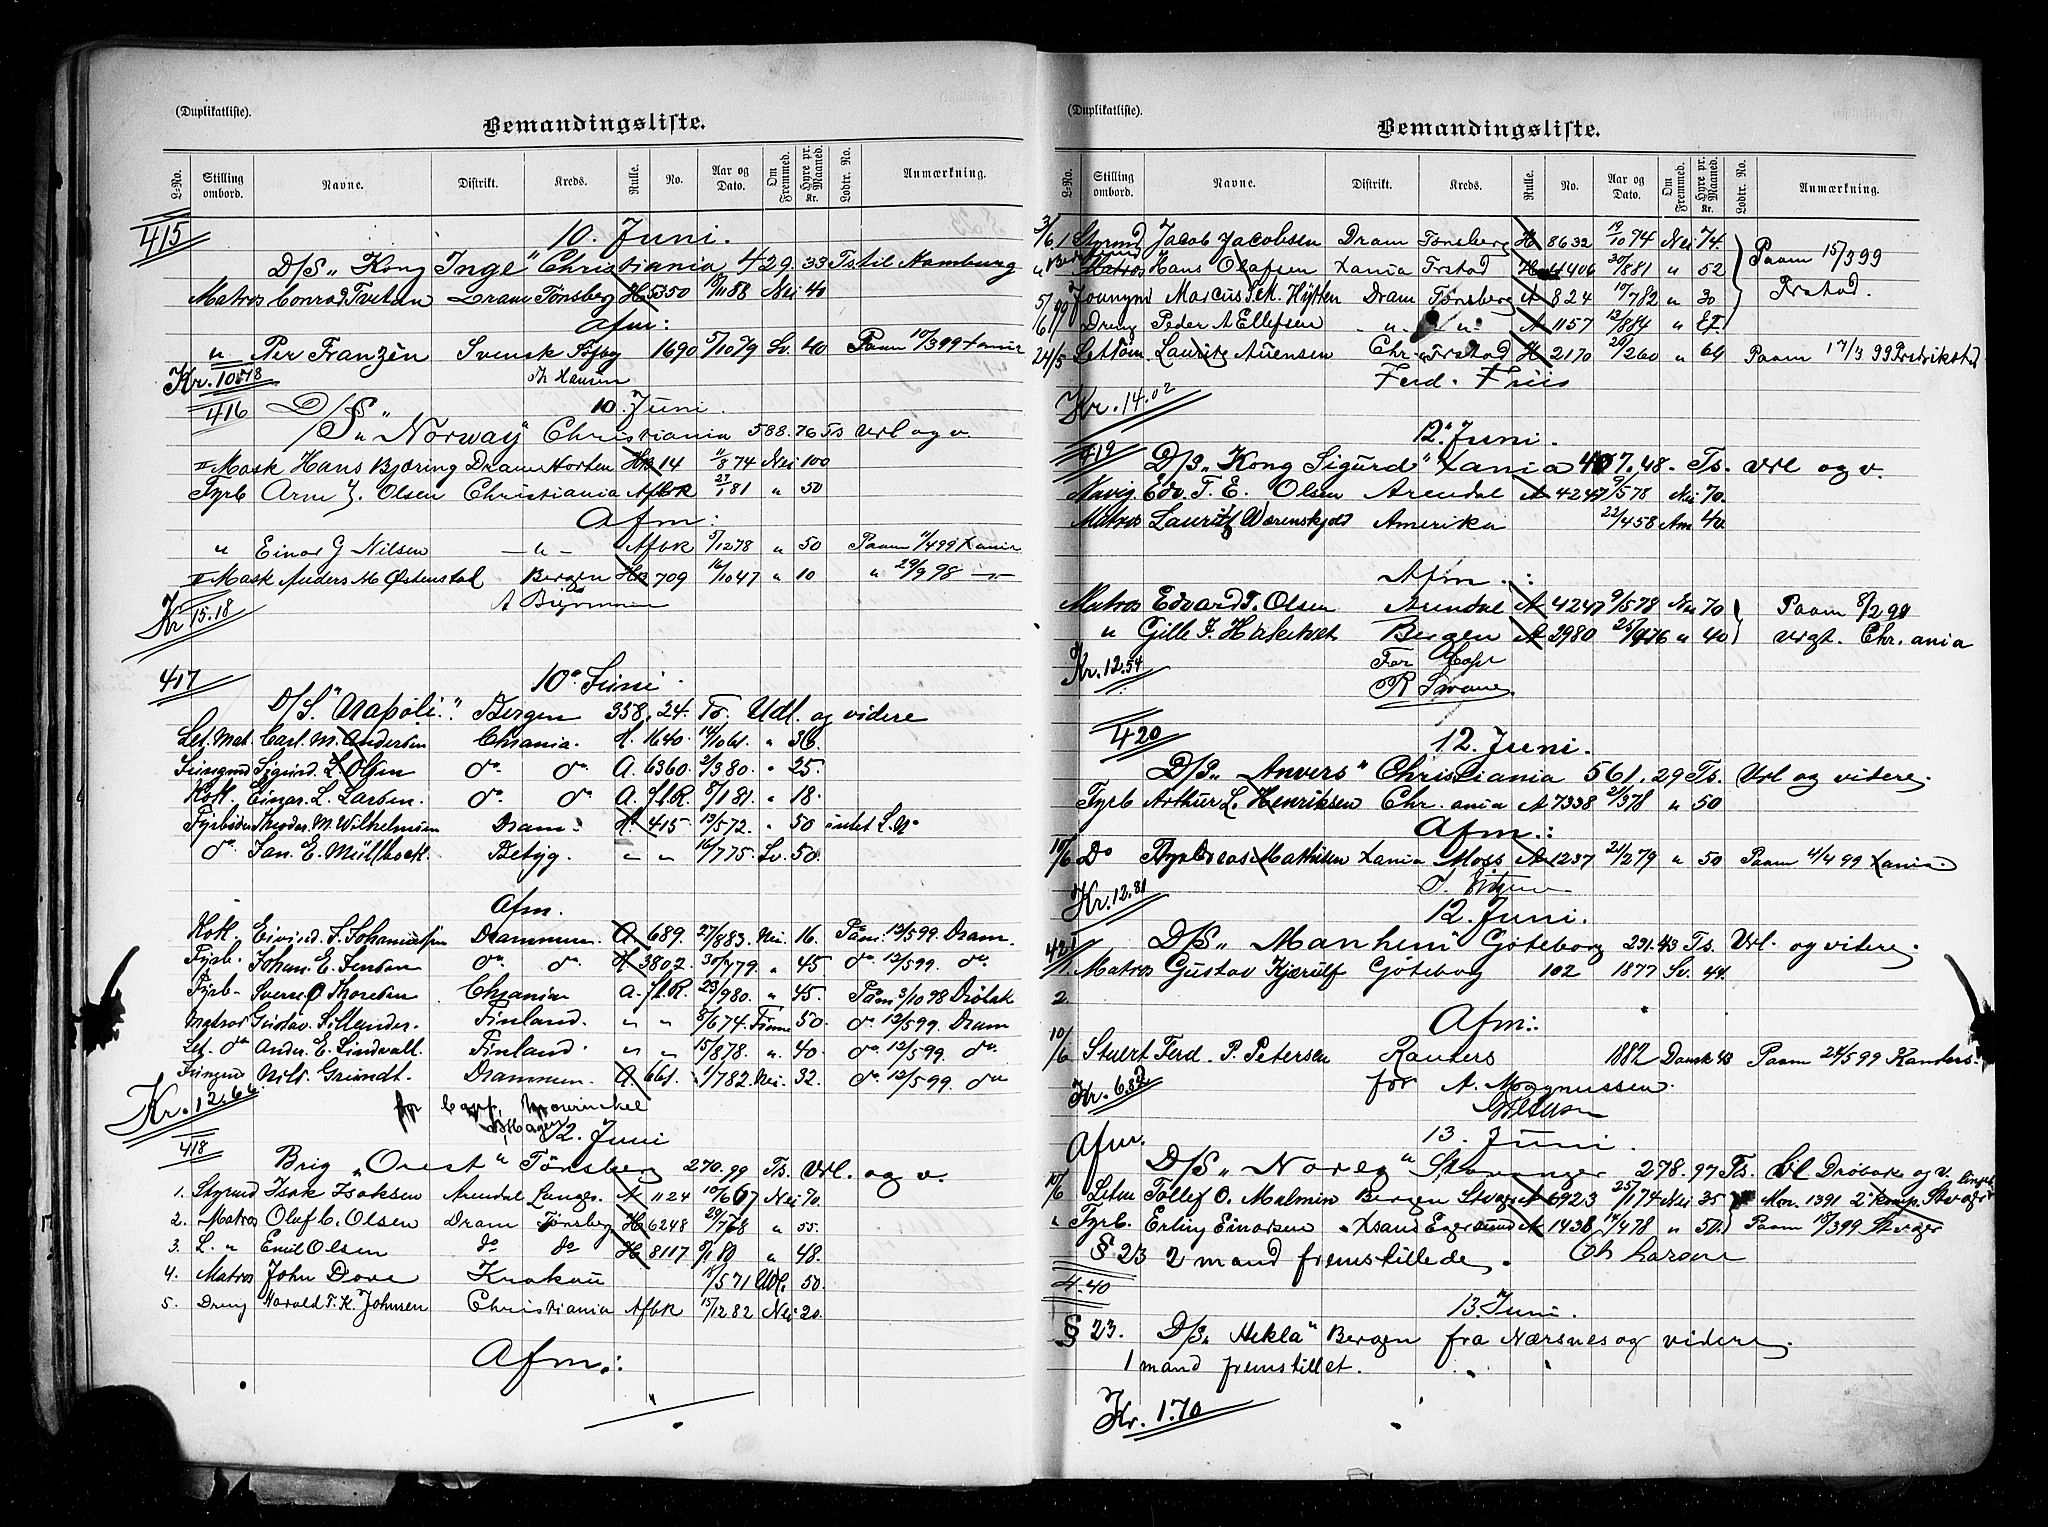 (Duplikatliste).
Bemandingsliste.
L-No. Stilling ombord. Navne. Distrikt. Kreds. Rulle. No. Aar og Dato. Om Fremmed. Hyre pr. Maaned. Kr. Lodtr. No. Anmærkning.
415 10. Juni.
D/S „Kong Inge" Christiania 429.33 Ts til Hamburg
Matros Conrad Tvetan Dram Tønsberg H 350 Nei 40
Afm:
" Per Franzén Svensk 1690 5/10 79 Sv. 40 Paam 10/3 99 Xania
Kr. 10.78 Th Hansen
416 10. Juni.
D/S „Norway" Christiania 588.76 Ts Url og v.
II Mask Hans Bjering Dram Horten 14 11/8 74 Nei 100
Fyrb Arne J. Olsen Christiania Afbk 27/1 81 " 50
Afm:
" Einar G Nilsen — " — Afbk 5/12 78 " 50 Paam 11/4 99 Xania
II Mask Anders M Østenstad Bergen 709 16/10 47 " 10 " 29/9 98 —"—
Kr 15.18
417 10de Juni.
D/S. "Napoli." Bergen 358.24. Ts. Udl. og videre
Let. Mat. Carl. M. Andersen Chrania. H. 1640. 14/10 61. " 36.
Jungmd Sigurd. L. Olsen do. do. A. 6360. 2/3 80. " 25.
Kok. Einar. L. Larsen. do. do. A. fl.R. 8/1 81. " 18.
Fyrbøder Theodor. M. Wilhelmsen Dram. H 415 13/5 72. " 50 intet L.No
do. Jan. E. Müllbock. Betyg. " " 16/7 75. Sv. 50.
Afm.
Kok. Eivind. S. Johannessen Drammen. A. 689. 27/8 83. Nei. 16. Paam. 12/5 99. Dram.
Fyrb. Johan. E. Jensen do. do. H 3802. 30/7 79. " 45 do. 12/5 99. do.
Fyrb- Sverre O Thoresen Chrania A. fl.R. 23/9 80. " 45. Paam 3/10 98 Drøbak
Matros Gustav. Sillander. Finland. " " 8/6 74. Finne 50. do. 12/5 99. Dram
Let. do Ander. E. Lindvall. Finland. " " 15/8 78. " 40. do. 12/5 99. do.
Jungmd Nils. Grundt. Drammen. A. 661. 1/7 82. Nei. 32. do. 12/5 99. do
Kr. 12.66 for Capt. Mowinckel
418 12. Juni
Brig „Orest" Tønsberg 270.99 Ts. Url. og v.
1. Styrmd Isak Isaksen Arendal Langes. A 1124 10/6 67 Nei 70.
2. Matros Olaf C. Olsen Dram Tønsberg H 6248 29/7 78 " 55.
3. L. " Emil Olsen do do H 8117 " 48.
4. Matros John Dove Krakau 18/5 71 Udl. 50.
5. Dreng Harald F. K. Johnsen Christiania Afbk 15/12 82 Nei 20.
Afm.:
(Duplikatliste).
Bemandingsliste.
L-No. Stilling ombord. Navne. Distrikt. Kreds. Rulle. No. Aar og Dato. Om Fremmed. Hyre pr. Maaned. Kr. Lodtr. No. Anmærkning.
3/6. 1 Styrmd Jacob Jacobsen Dram Tønsberg H 8632 19/10 74 Nei 74. Paam 15/3 99
" Matros Hans Olafsen Xania Frstad H 4406 30/8 81 " 52
5/6 99 Joungm Marcus Hytten Dram Tønsberg A 824 10/7 82 " 30 Frstad.
Dreng Peder A Ellefsen - " - " - A 1157 13/8 84 "
24/5 Lettm. Lauritz Auensen Chr- Frstad H 2170 26/2 60 " 64 Paam 17/3 99 Fredrikstad
Ferd. Friis
Kr. 14.02
12. Juni.
419 D/S „Kong Sigurd" Xania 407.48. Ts. Url og v.
Navig Edv. T. E. Olsen Arendal A 4247 9/5 78 Nei 70.
Matros Lauritz Warenskjold Amerika 22/4 58 Am 40.
Afm.:
Matros Edvard T. Olsen Arendal A 4247 9/5 78 Nei 70 Paam 8/2 99
" Gille F. Bergen A 2980 " 40 Chr.ania
Kr. 12.54 For Capt
420 12. Juni.
D/S „Anvers" Christiania 561.29 Ts. Url og videre.
Fyrb Arthur L. Henriksen Chr.ania A 7338 21/3 78 " 50
Afm.:
10/6 Do Mathisen Xania Moss A 1237 21/2 79 " 50 Paam 11/4 99 Xania.
Kr. 12.81
12. Juni.
421 D/S „Manhem" Göteborg 231.43 Ts. Url. og videre.
1. Matros Gustav Kjærulf Göteborg 102 1877 Sv. 44.
2.
Afm:
10/6 Stuert Ferd. P. Petersen Randers 1882 Dansk 43 Paam 24/5 99 Randers.
Kr. 6.82 for A. Magnussen.
13. Juni.
Afm. D/S „Noreg" Stavanger 278.97 Ts. til Drøbak og v.
10/6 Letm Tollef O. Malmin Bergen Stvgr A 6923 25/1 74 Nei 35 Mon. 1391 2 komp. Stvgr
" Fyrb. Erling Einarsen Xsand Egersund A 1438 14/4 78 " 50 Paam 15/3 99 Stvger
§ 23 2 mand fremstillede. Larsen
4.40
13. Juni.
§ 23. D/S „Hekla" Bergen fra Nærsnes og videre.
1 mand fremstillet.
Kr. 1.70